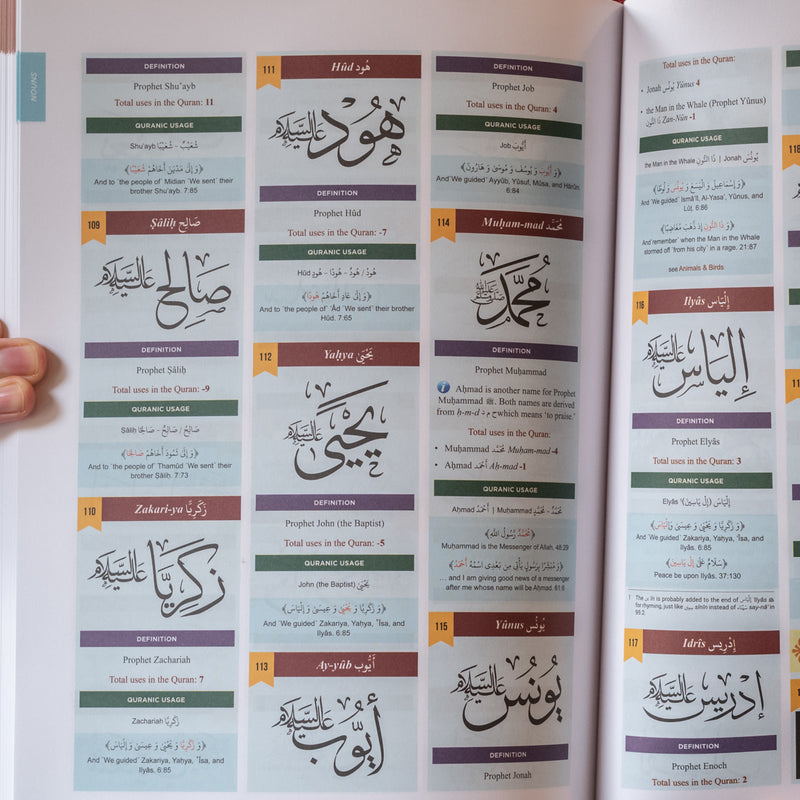 NOUNS
DEFINITION
Prophet Shu'ayb
Total uses in the Quran: 11
QURANIC USAGE
Shu'ayb شُعَيْبٌ - شُعَيْبًا
﴿وَ إِلَىٰ مَدْيَنَ أَخَاهُمْ شُعَيْبًا﴾
And to ˹the people of˺ Midian ˹We sent˺ their
brother Shu'ayb. 7:85
109 Ṣâliḥ صَالِح
صَالِح عَلَيْهِ السَّلَام
DEFINITION
Prophet Ṣâliḥ
Total uses in the Quran: -9
QURANIC USAGE
Ṣâliḥ صَالِحٌ / صَالِحُ - صَالِحًا
﴿وَ إِلَىٰ ثَمُودَ أَخَاهُمْ صَالِحًا﴾
And to ˹the people of˺ Thamûd ˹We sent˺ their
brother Ṣâliḥ. 7:73
110 Zakari-ya زَكَرِيَّا
زَكَرِيَّا عَلَيْهِ السَّلَام
DEFINITION
Prophet Zachariah
Total uses in the Quran: 7
QURANIC USAGE
Zachariah زَكَرِيَّا
﴿وَ زَكَرِيَّا وَ يَحْيَىٰ وَ عِيسَىٰ وَ إِلْيَاسَ﴾
And ˹We guided˺ Zakariya, Yaḥya, ʿÎsa, and
Ilyâs. 6:85
111 Hûd هُود
هُود عَلَيْهِ السَّلَام
DEFINITION
Prophet Hûd
Total uses in the Quran: -7
QURANIC USAGE
Hûd هُودُ / هُودٌ - هُودًا - هُودٍ
﴿وَ إِلَىٰ عَادٍ أَخَاهُمْ هُودًا﴾
And to ˹the people of˺ ʿÂd ˹We sent˺ their brother
Hûd. 7:65
112 Yaḥya يَحْيَىٰ
يَحْيَىٰ عَلَيْهِ السَّلَام
DEFINITION
Prophet John (the Baptist)
Total uses in the Quran: -5
QURANIC USAGE
John (the Baptist) يَحْيَىٰ
﴿وَ زَكَرِيَّا وَ يَحْيَىٰ وَ عِيسَىٰ وَ إِلْيَاسَ﴾
And ˹We guided˺ Zakariya, Yaḥya, ʿÎsa, and
Ilyâs. 6:85
113 Ay-yûb أَيُّوب
أَيُّوب عَلَيْهِ السَّلَام
DEFINITION
Prophet Job
Total uses in the Quran: 4
QURANIC USAGE
Job أَيُّوبَ
﴿وَ أَيُّوبَ وَ يُوسُفَ وَ مُوسَىٰ وَ هَارُونَ﴾
And ˹We guided˺ Ayyûb, Yûsuf, Mûsa, and Hârûn.
6:84
114 Muḥam-mad مُحَمَّد
مُحَمَّد صلى الله عليه وسلم
DEFINITION
Prophet Muḥammad
Aḥmad is another name for Prophet
Muḥammad ﷺ. Both names are derived
from ḥ-m-d ح م د which means 'to praise.'
Total uses in the Quran:
• Muḥammad مُحَمَّد Muḥam-mad -4
• Aḥmad أَحْمَد Aḥ-mad -1
QURANIC USAGE
Aḥmad أَحْمَدُ | Muḥammad مُحَمَّدٌ - مُحَمَّدٍ
﴿مُحَمَّدٌ رَسُولُ اللَّهِ﴾
Muḥammad is the Messenger of Allah. 48:29
﴿وَ مُبَشِّرًا بِرَسُولٍ يَأْتِي مِن بَعْدِي اسْمُهُ أَحْمَدُ﴾
... and I am giving good news of a messenger
after me whose name will be Aḥmad. 61:6
115 Yûnus يُونُس
يُونُس عَلَيْهِ السَّلَام
DEFINITION
Prophet Jonah
Total uses in the Quran:
• Jonah يُونُس Yûnus 4
• the Man in the Whale (Prophet Yûnus)
ذَا النُّون Zan-Nûn -1
QURANIC USAGE
the Man in the Whale ذَا النُّونِ | Jonah يُونُسَ
﴿وَ إِسْمَاعِيلَ وَ الْيَسَعَ وَ يُونُسَ وَ لُوطًا﴾
And ˹We guided˺ Ismâʿîl, Al-Yasaʿ, Yûnus, and
Lûṭ. 6:86
﴿وَ ذَا النُّونِ إِذ ذَّهَبَ مُغَاضِبًا﴾
And remember ˹when the Man in the Whale
stormed off ˹from his city˺ in a rage. 21:87
see Animals & Birds
116 Ilyâs إِلْيَاس
إِلْيَاس عَلَيْهِ السَّلَام
DEFINITION
Prophet Elyâs
Total uses in the Quran: 3
QURANIC USAGE
Elyâs إِلْيَاسَ (إِلْ يَاسِينَ)¹
﴿وَ زَكَرِيَّا وَ يَحْيَىٰ وَ عِيسَىٰ وَ إِلْيَاسَ﴾
And ˹We guided˺ Zakariya, Yaḥya, ʿÎsa, and
Ilyâs. 6:85
﴿سَلَامٌ عَلَىٰ إِلْ يَاسِينَ﴾
Peace be upon Ilyâs. 37:130
1 The ين în is probably added to the end of إِلْيَاس Ilyâs
for rhyming, just like سِينِين sînîn instead of سَيْنَاء say-nâ' in
95:2
117 Idrîs إِدْرِيس
إِدْرِيس عَلَيْهِ السَّلَام
DEFINITION
Prophet Enoch
Total uses in the Quran: 2
118